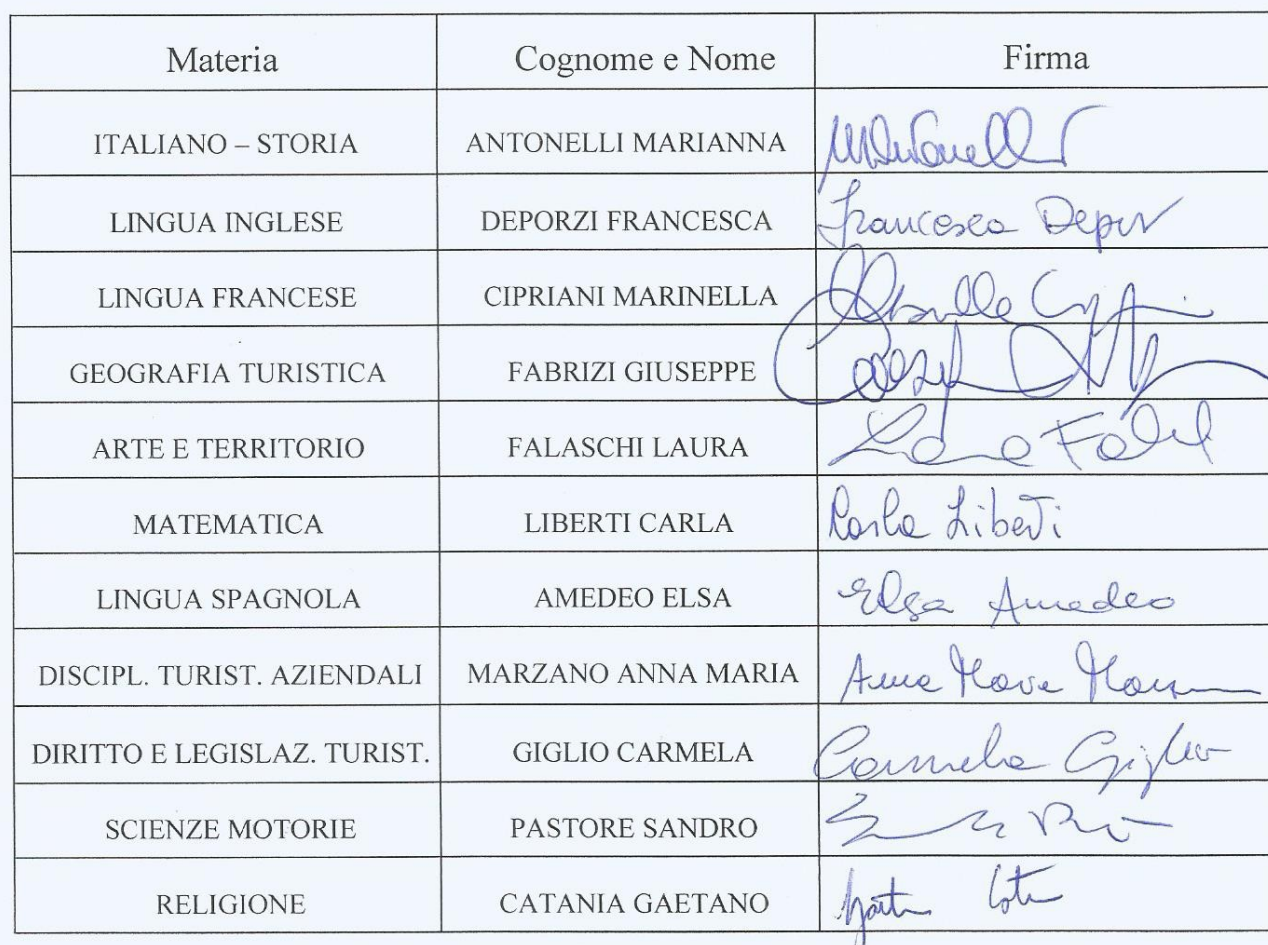 Materia Cognome e Nome Firma
ITALIANO – STORIA ANTONELLI MARIANNA MAntonelli
LINGUA INGLESE DEPORZI FRANCESCA Francesca
LINGUA FRANCESE CIPRIANI MARINELLA
GEOGRAFIA TURISTICA FABRIZI GIUSEPPE
ARTE E TERRITORIO FALASCHI LAURA
MATEMATICA LIBERTI CARLA Carla Liberti
LINGUA SPAGNOLA AMEDEO ELSA Elsa Amedeo
DISCIPL. TURIST. AZIENDALI MARZANO ANNA MARIA Anna Maria
DIRITTO E LEGISLAZ. TURIST. GIGLIO CARMELA Carmela Giglio
SCIENZE MOTORIE PASTORE SANDRO
RELIGIONE CATANIA GAETANO